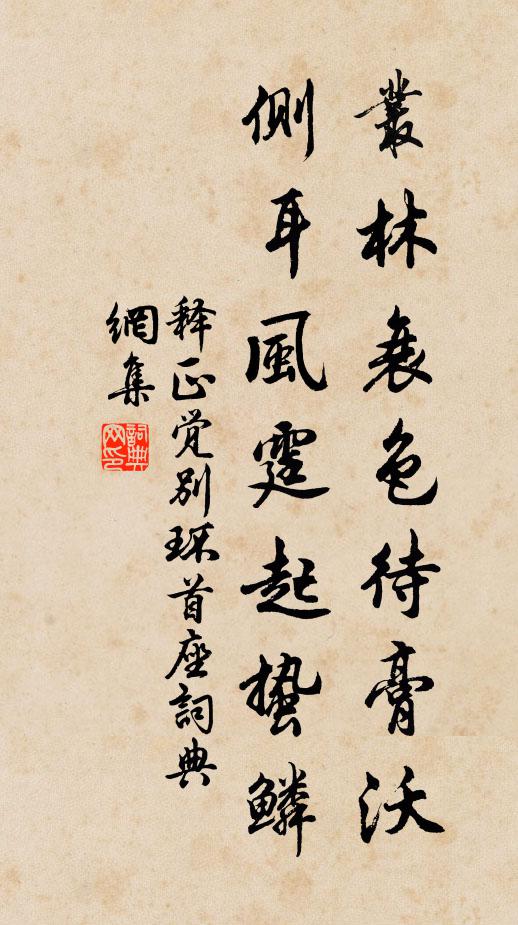 叢林衰色待膏沃
側耳風霆起蟄鱗
释正觉别琛首座詞典
網集
詞典網印